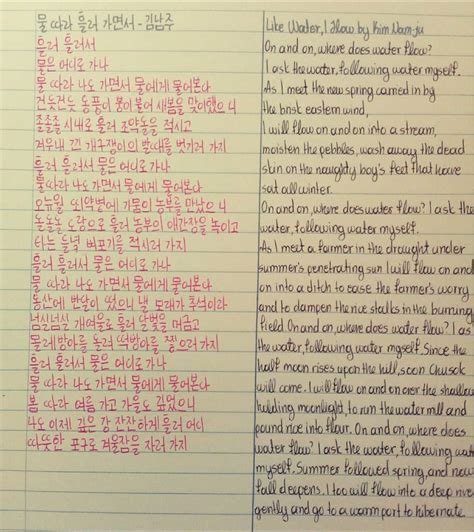 물 따라 흘러 가면서 - 김남주
흘러 흘러서
물은 어디로 가나
물 따라 나도 가면서 물에게 물어본다
건듯건듯 동풍이 불어 새봄을 맞이했으니
졸졸졸 시내로 흘러 조약돌을 적시고
겨우내 낀 개구쟁이의 발때를 벗기러 가지
흘러 흘러서 물은 어디로 가나
물 따라 나도 가면서 물에게 물어본다
오뉴월 뙤약볕에 가뭄의 농부를 만났으니
돌돌돌 도랑으로 흘러 농부의 애간장을 녹이고
타는 들녘 벼포기를 적시러 가지
흘러 흘러서 물은 어디로 가나
물 따라 나도 가면서 물에게 물어본다
동산에 반달이 떴으니 낼 모래가 추석이라
넘실넘실 개여울로 흘러 달빛을 머금고
물레방아를 돌려 떡방아를 찧으러 가지
흘러 흘러서 물은 어디로 가나
물 따라 나도 가면서 물에게 물어본다
봄 따라 여름 가고 가을도 깊었으니
나도 이제 깊은 강 잔잔하게 흘러 어디
따뜻한 포구로 겨울잠을 자러 가지
Like Water, I Flow by Kim Nam-ju
On and on, where does water flow?
I ask the water, following water myself.
As I meet the new spring carried in by
the brisk eastern wind,
I will flow on and on into a stream,
moisten the pebbles, wash away the dead
skin on the naughty boy's feet that have
sat all winter.
On and on, where does water flow? I ask the
water, following water myself.
As I meet a farmer in the drought under
summer's penetrating sun I will flow on and
on into a ditch to ease the farmer's worry
and to dampen the rice stalks in the burning
field. On and on, where does water flow? I as
the water, following water myself. Since the
half moon rises upon the hill, soon Chusok
will come. I will flow on and on over the shallow
holding moonlight, to run the water mill and
pound rice into flour. On and on, where does
water flow? I ask the water, following wate
myself. Summer followed spring, and now
fall deepens. I too will flow into a deep rive
gently and go to a warm port to hibernate.